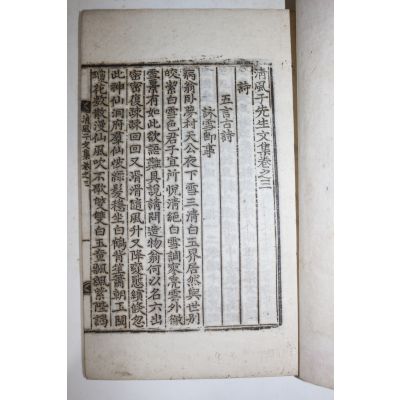 清風子先生文集卷之三
詩
五言古詩
詠雪即事
病翁臥夢利天公夜下雪三清白玉界居然與世別
皎皎白雪色君子宜所悅清絕白雪調寥亮雲外徹
雪景有如此欲語難具說請問造物翁何以名六出
密密復疎疎回回又滑滑隨風升又降變態續欻忽
此神仙洞府羣仙恢綠髮穩坐白鶴背逶迤朝玉闕
瓊花散散漫仙風吹不歇雙雙白玉童飄飄紫陛謁
清風子文集卷之三